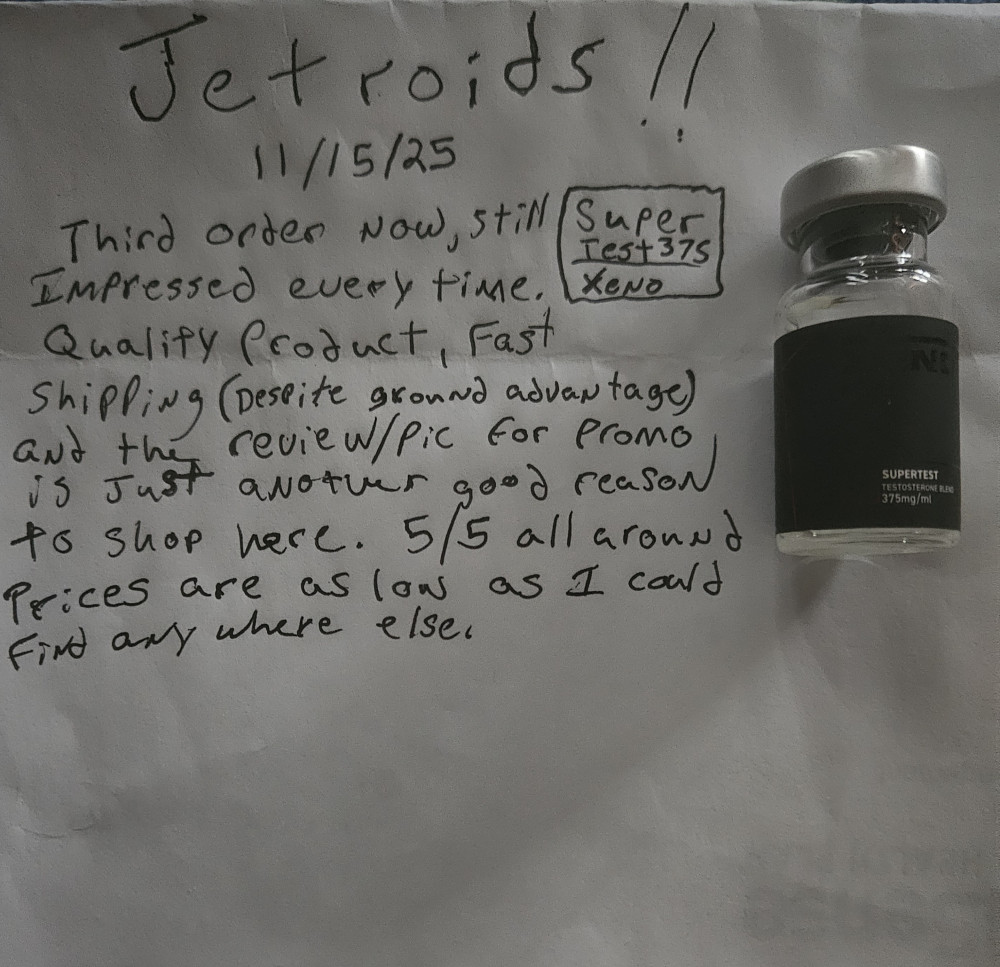 Jetroids!!
11/15/25
Third order now, still
Impressed every time.
Super
Test 375
Xeno
Quality Product, Fast
Shipping (Despite ground advantage)
and the review/pic for promo
is just another good reason
to shop here. 5/5 all around
Prices are as low as I could
find any where else.
SUPERTEST
TESTOSTERONE BLEND
375mg/ml